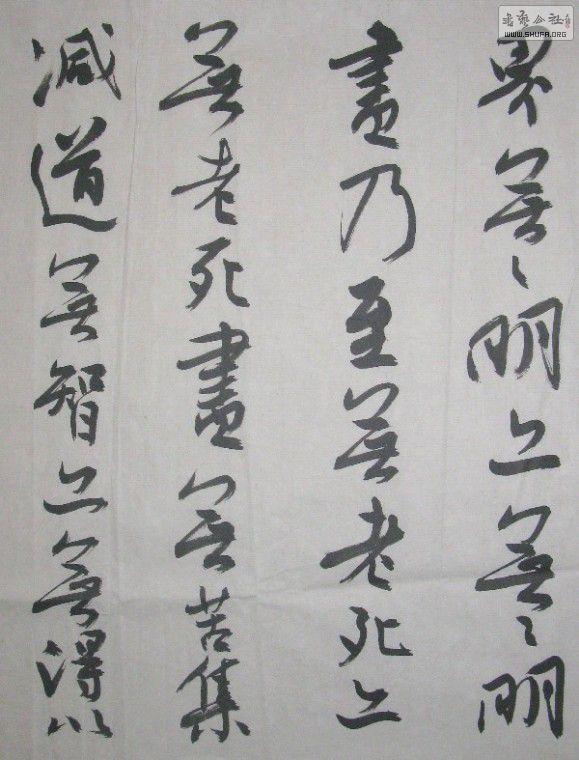 界無々明亦無々明
盡乃至無老死亦
無老死盡無苦集
滅道無智亦無得以
書藝公社
WWW.SHUFA.ORG